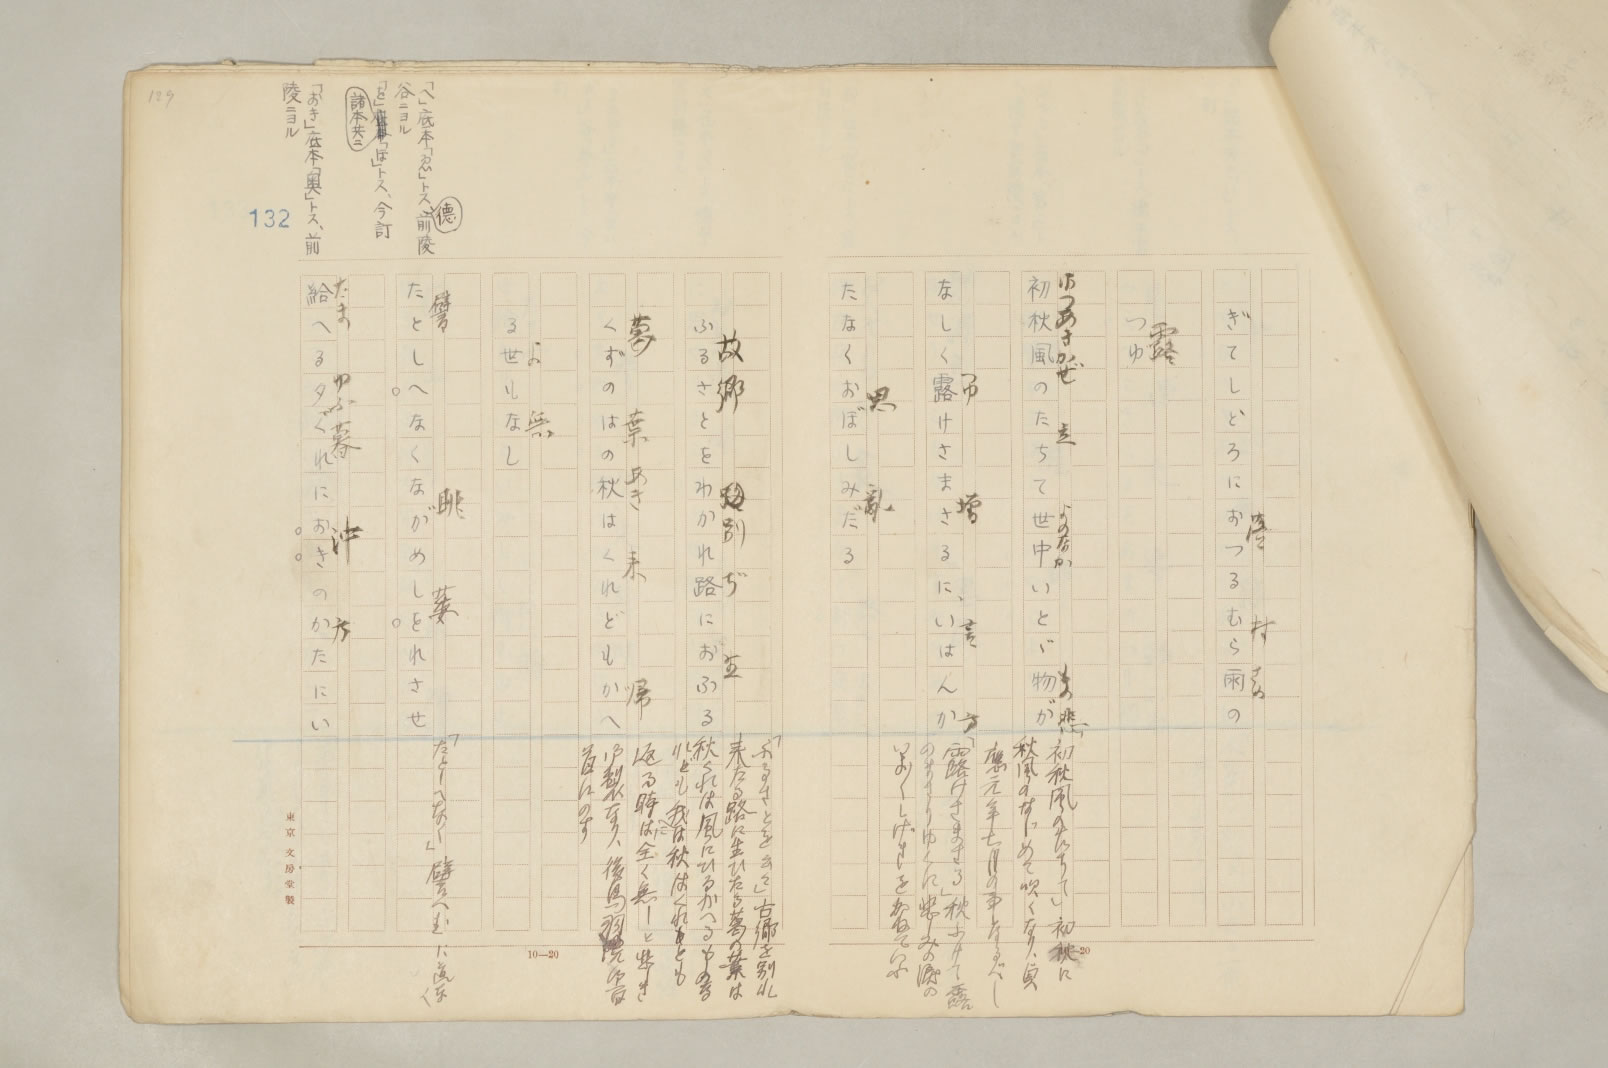 129
132
「へ」底本「ゑ」トス、前陵
德
谷ニヨル
「を」「ほ」トス、今訂
諸本共ニ
「おき」底本「奥」トス、前
陵ニヨル
ぎてしどろにおつるむら雨の
村 雨
つゆ
露
初秋風のたちて世中いとゞ物が
はつあきかぜ 立 よのなか もの 悲
なしく露けさまさるに、いはんか
つゆ 増 言 方
たなくおぼしみだる
思 亂
ふるさとをわかれ路におふる
故郷 別 ぢ 生
くずのはの秋はくれどもかへ
葛 葉 あき 来 帰
る世もなし
よ 無
たとしへなくながめしをれさせ
譬 眺 萎
給へる夕ぐれにおきのかたにい
たま ゆふ暮 沖 方
「初秋風のたちて」初秋に
秋風のはじめて吹くなり、貞
應元年七月の事となるべし
「露けさまさる」秋ふけて露
のまさりゆくに悲しみの涙の
いよくしげきをかねていふ
「ふるさとを云々」古郷を別れ
来たる路に生ひたる葛の葉は
秋くれば風にひるがへるもの
れども我は秋はくれども
返る時は全く無しと悲しき
御製なり、後鳥羽院御
百首にのす
「たとしへなく」譬へむに
10—20
東京文房堂製